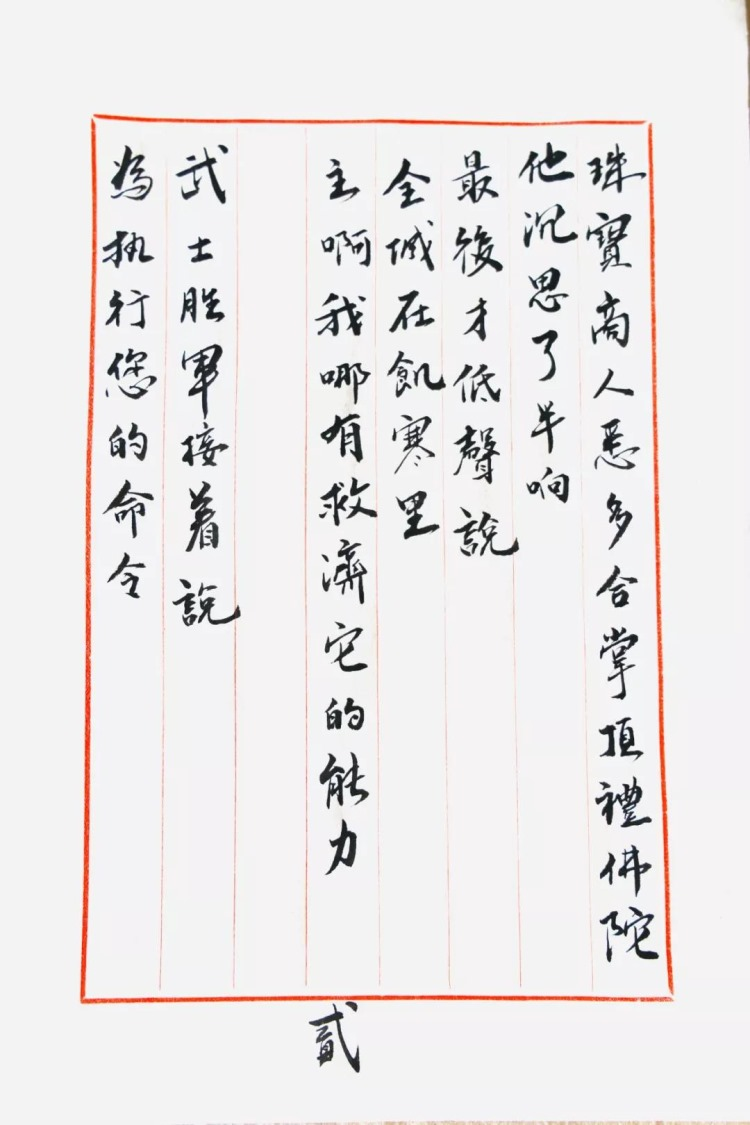 珠寶商人悉多合掌頂禮佛陀
他沉思了半晌
最後才低聲說
全城在飢寒里
主啊我哪有救濟它的能力
武士胜軍接着說
為执行您的命令
貳